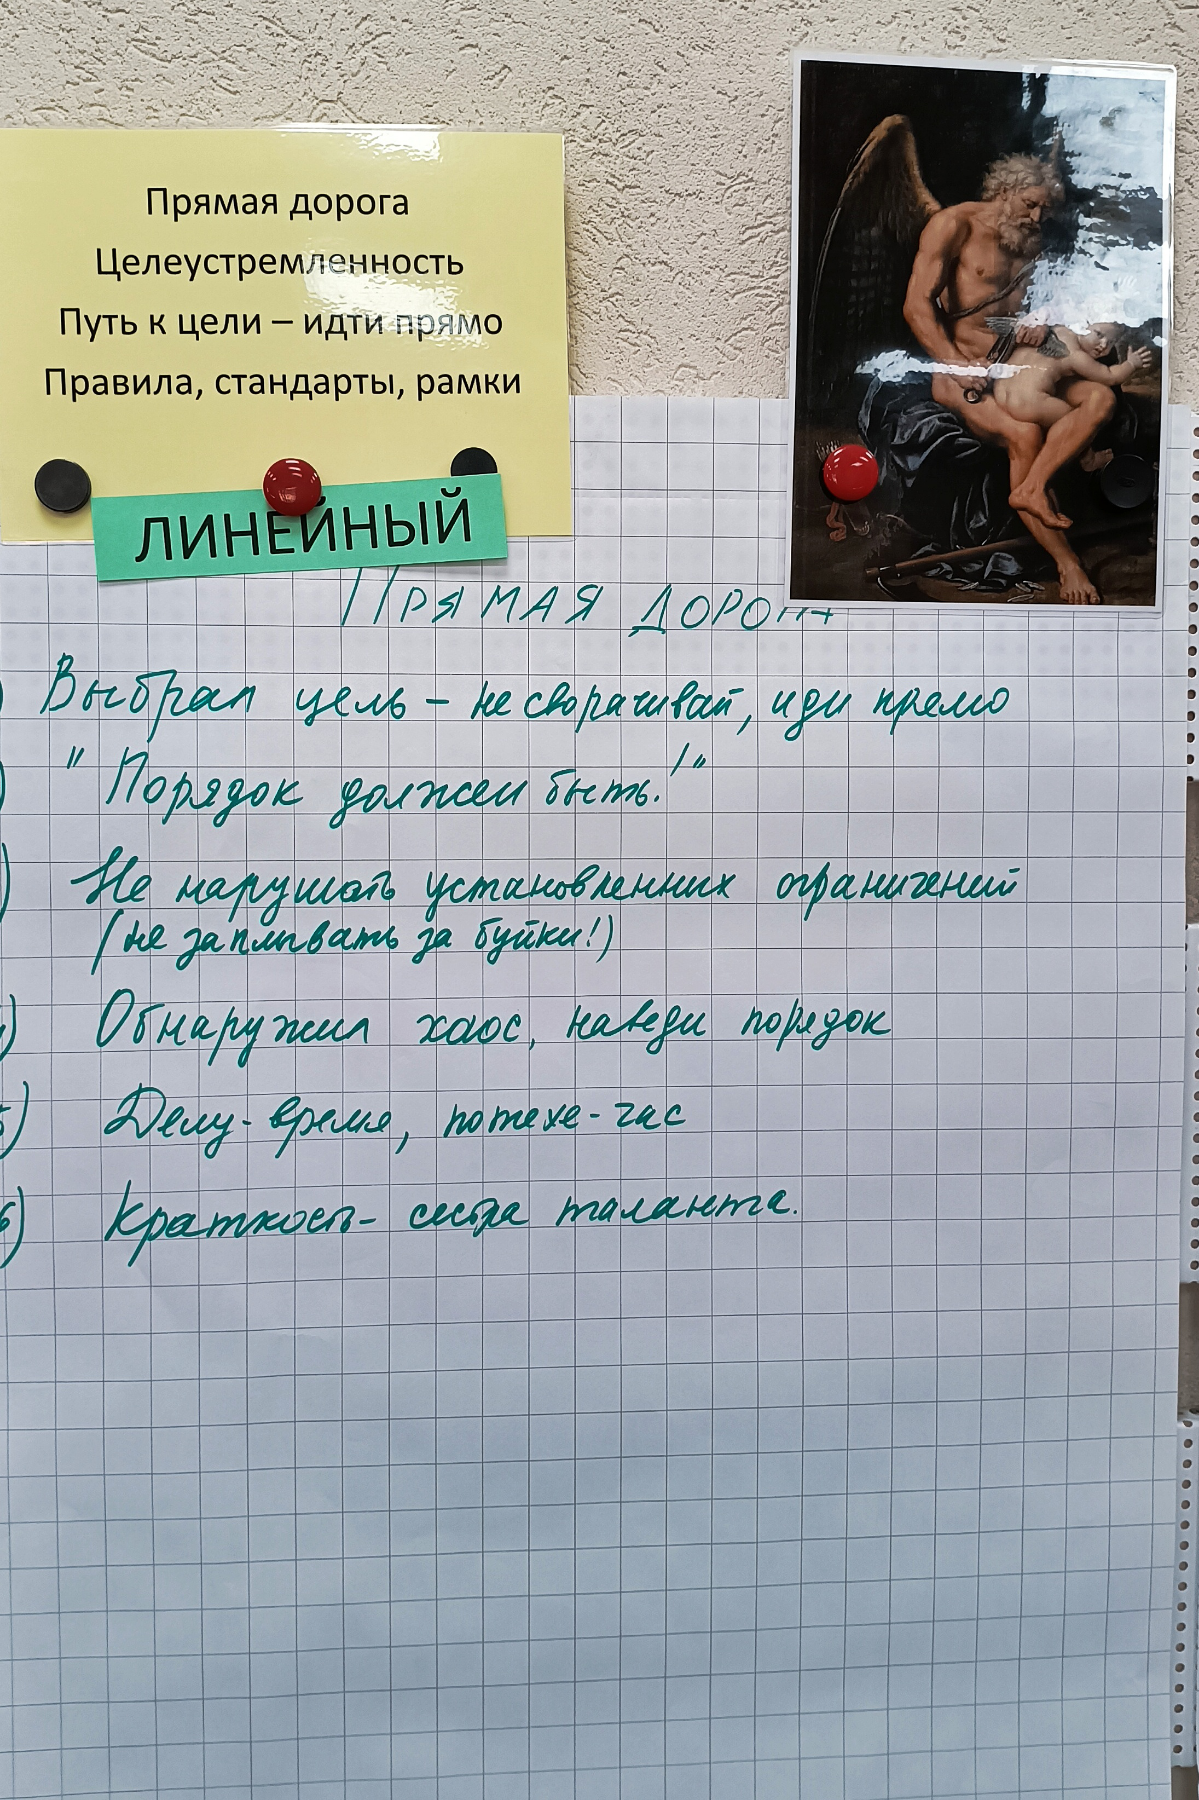 Прямая дорога
Целеустремленность
Путь к цели – идти прямо
Правила, стандарты, рамки
ЛИНЕЙНЫЙ
ПРЯМАЯ ДОРОГА
) Выбрал цель – не сворачивай, иди прямо
) "Порядок должен быть!"
) Не нарушать установленных ограничений
(не заплывать за буйки!)
4) Обнаружил хаос, наведи порядок
5) Делу - время, потехе - час
6) Краткость - сестра таланта.